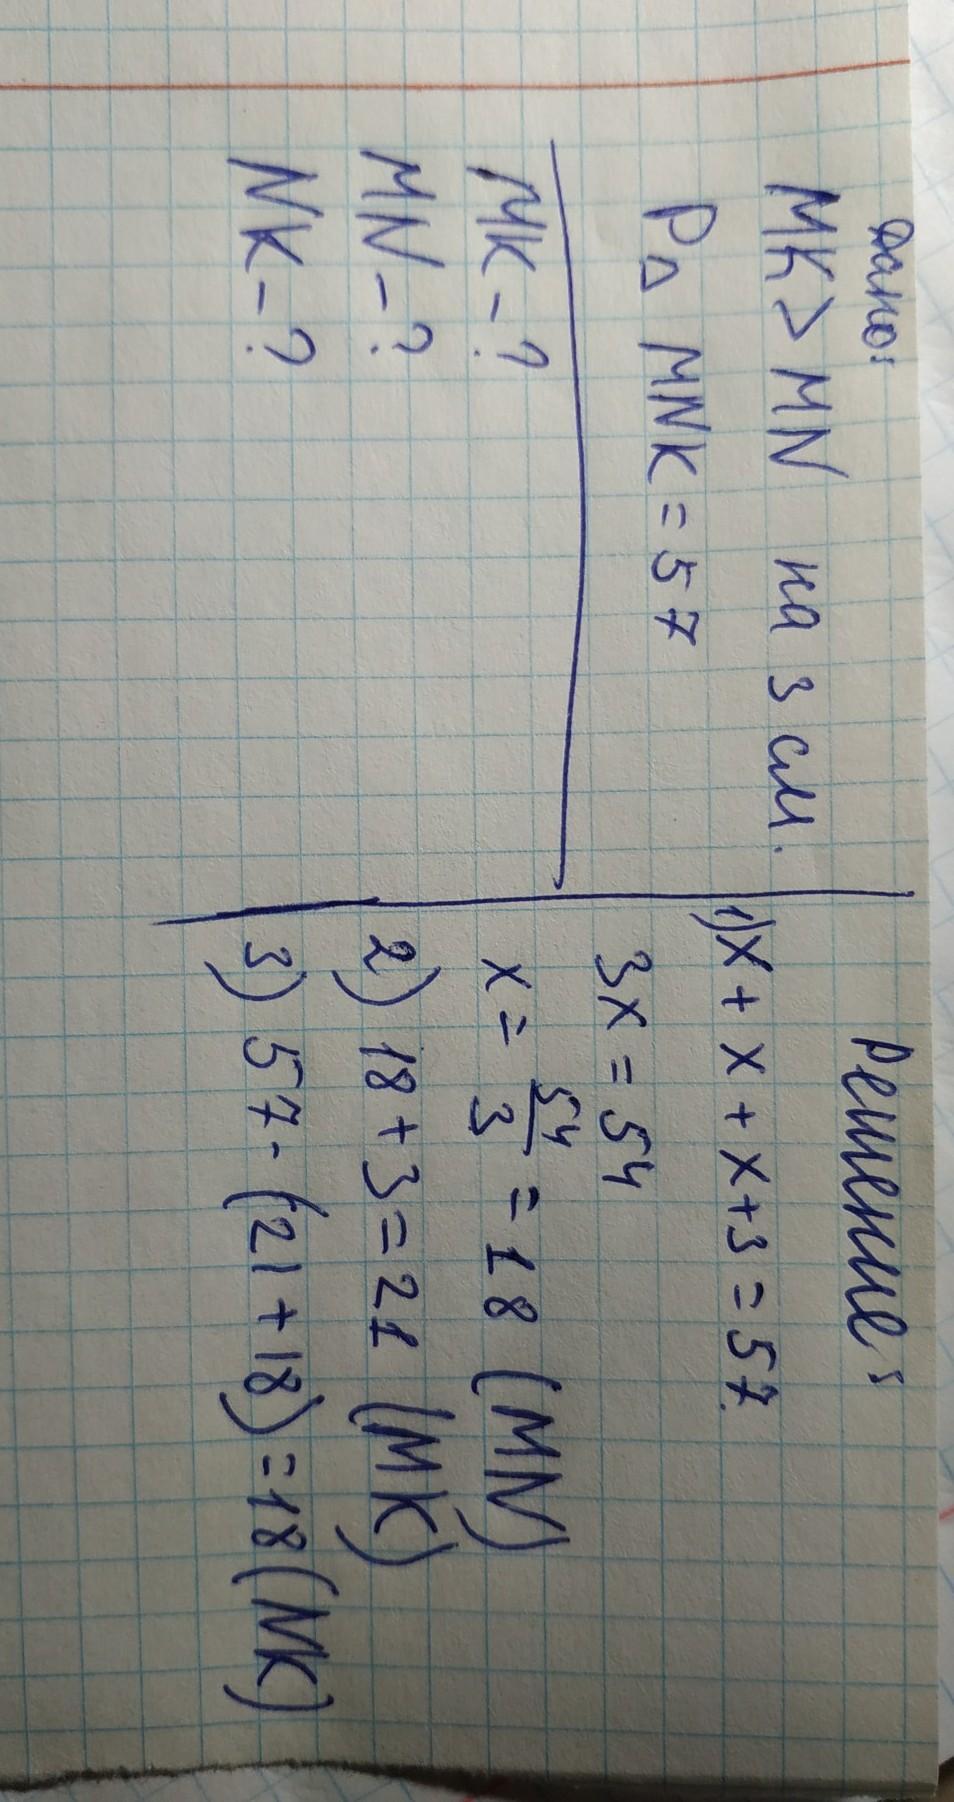 Дано:
MK > MN на 3 см.
P△ MNK = 57
MK - ?
MN - ?
NK - ?
Решение:
1) x + x + x + 3 = 57
3x = 54
x = 54/3 = 18 (MN)
2) 18 + 3 = 21 (MK)
3) 57 - (21 + 18) = 18 (NK)